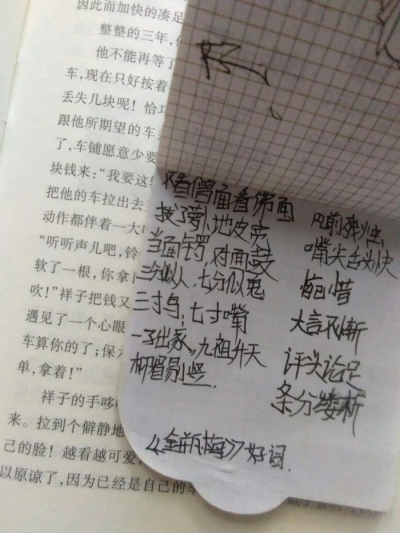 因此而加快的凑足
整整的三年,
他不能再等了
车,现在只好按着
丢失几块呢!恰
跟他所期望的车
了,车铺愿意少要
块钱来:“我要这
把他的车拉出去
动作都伴着一大
“听听声儿吧,铃
软了一根,你拿
吹!”祥子把钱又
遇见了一个心眼
车算你的了;保
单,拿着!”
祥子的手哆
来。拉到个僻静地
己的脸!越看越可爱,
以原谅了,因为已经是自己的车
看僧面看佛面
拔了萝卜地皮宽
当面锣 对面鼓
三分似人,七分似鬼
三寸鸟,七寸嘴
一子出家,九祖升天
《金瓶梅》好词
嘴尖舌头快
大言不惭
评头论足
条分缕析